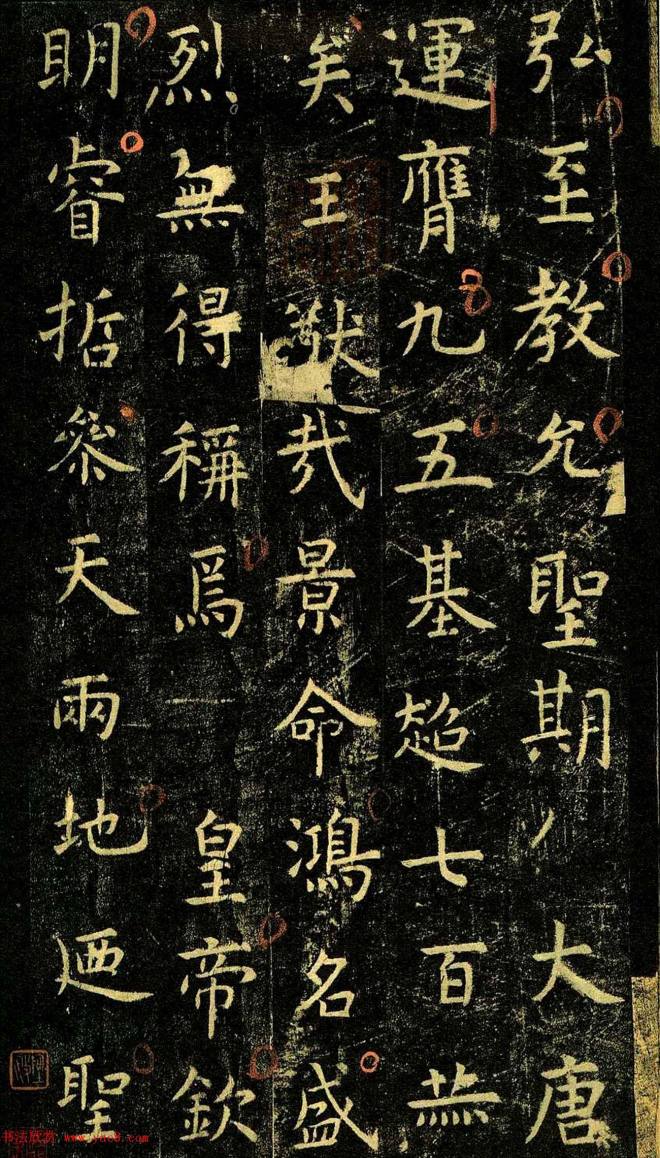 弘至教允聖期大唐
運膺九五基超七百
矣王猷哉景命鴻名盛
烈無得稱焉皇帝欽
明睿哲參天兩地迺聖
书法欣赏 www.yac8.com